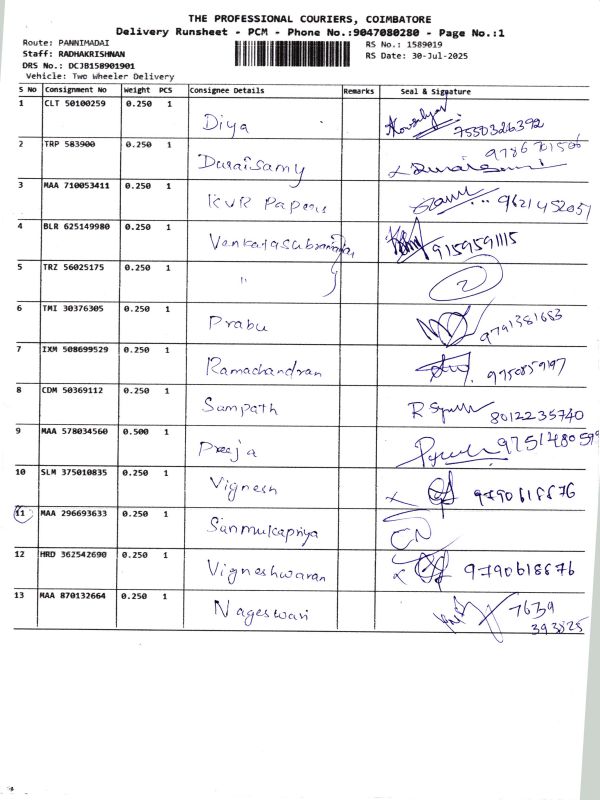 THE PROFESSIONAL COURIERS, COIMBATORE
Delivery Runsheet - PCM - Phone No.:9047080280 - Page No.:1
Route: PANNIMADAI
Staff: RADHAKRISHNAN
DRS No.: DCJB158901901
Vehicle: Two Wheeler Delivery
RS No.: 1589019
RS Date: 30-Jul-2025
S No Consignment No Weight PCS Consignee Details Remarks Seal & Signature
1 CLT 50100259 0.250 1 Diya 7550326392
2 TRP 583900 0.250 1 Duraisamy 9786701506
3 MAA 710053411 0.250 1 KVR Papers 9621452057
4 BLR 625149980 0.250 1 9159591115
5 TRZ 56025175 0.250 1 " 2
6 TMI 30376305 0.250 1 Prabu 9791381683
7 IXM 508699529 0.250 1 Ramachandran 9750859197
8 CDM 50369112 0.250 1 Sampath 8012235740
9 MAA 578034560 0.500 1 Preeja
10 SLM 375010835 0.250 1 Vignesh 9790618676
11 MAA 296693633 0.250 1 Sanmukapriya CN
12 HRD 362542690 0.250 1 Vigneshwaran 9790618676
13 MAA 870132664 0.250 1 Nageswari 7639
393825